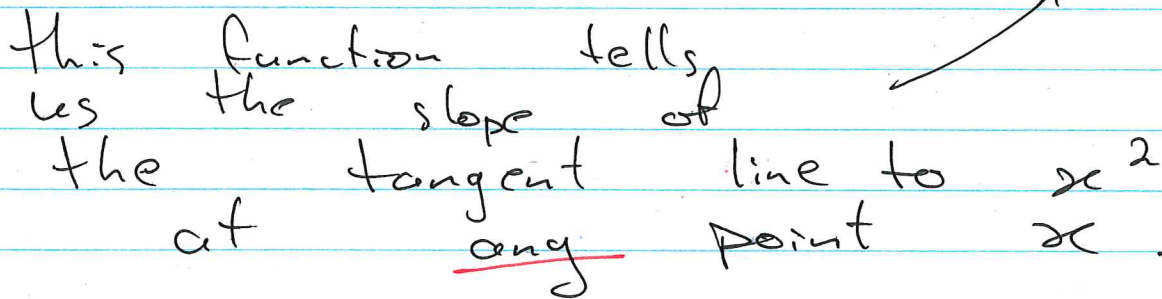 this function tells
us the slope of
the tangent line to x²
at any point x.